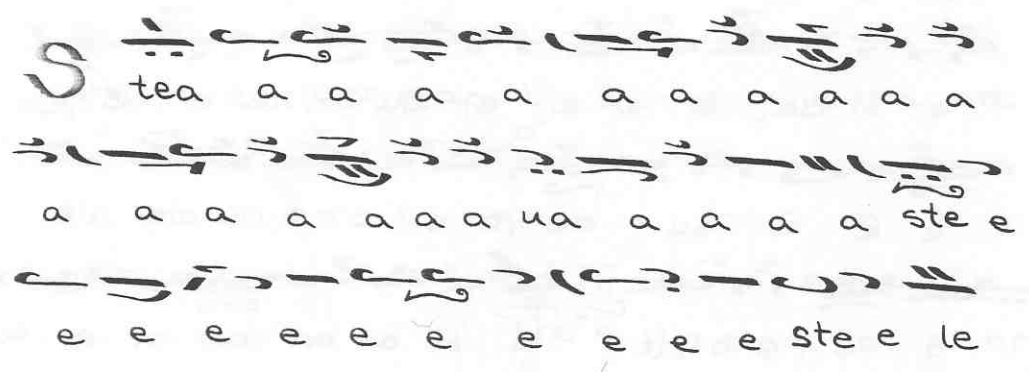 S tea a a a a a a a a a a
a a a a a a a ua a a a a ste e
e e e e e e e e e e ste e le